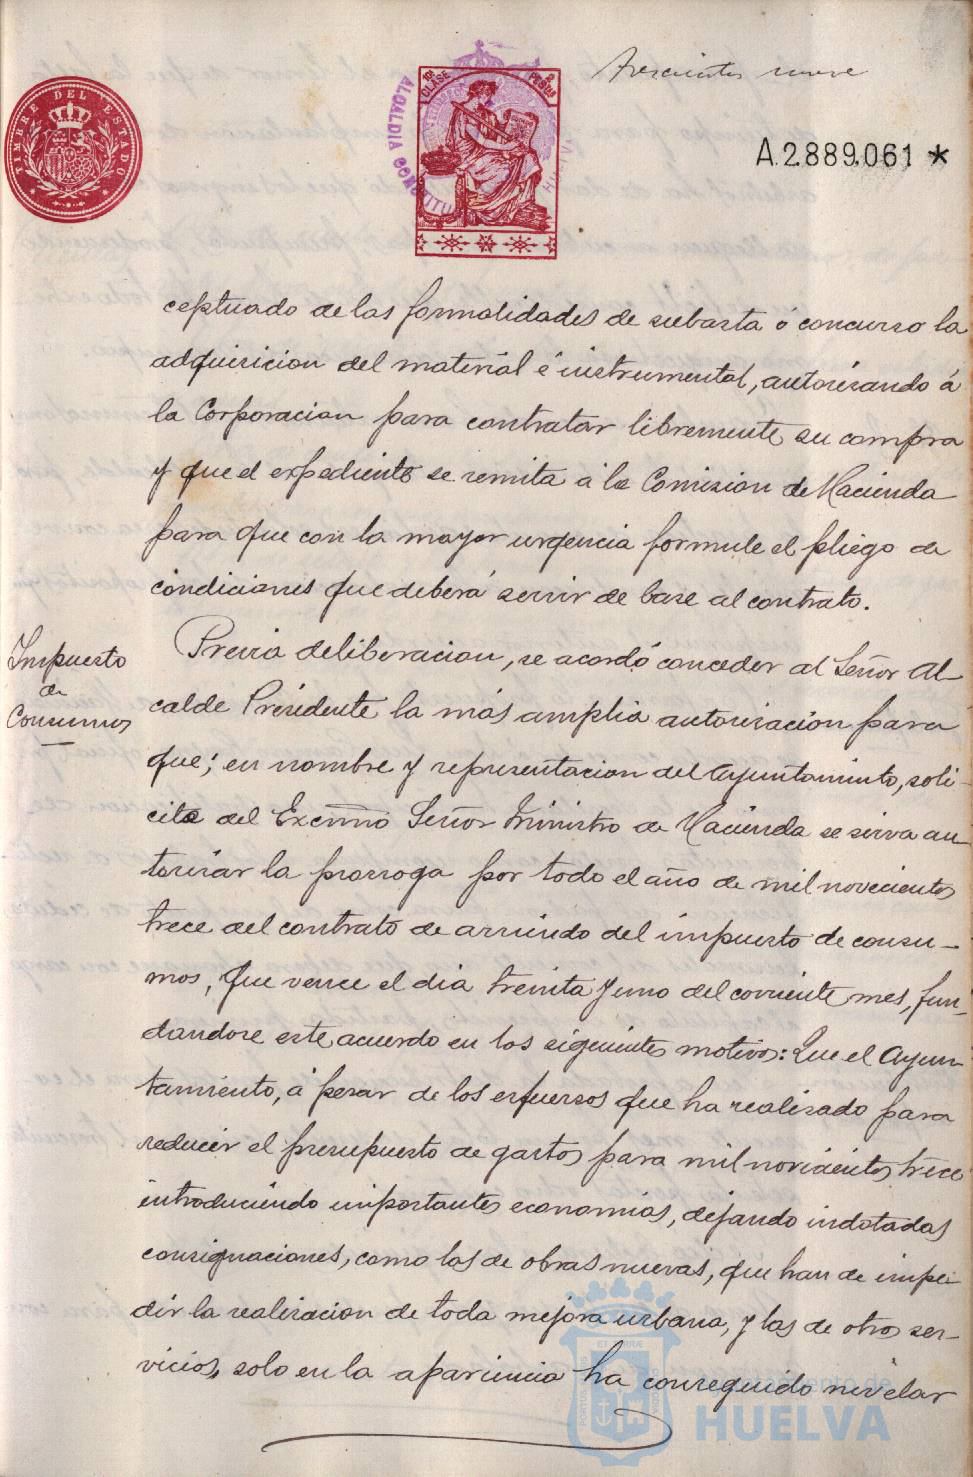 Trescientos nueve
TIMBRE DEL ESTADO
10ª CLASE
2 PESTAS
ALCALDIA CONSTITU
HUELVA
A.2.889.061 *
ceptuado de las formalidades de subasta ó concurso la
adquisicion del material é instrumental, autorizando á
la Corporacion para contratar libremente su compra
y que el expediente se remita á la Comision de Hacienda
para que con la mayor urgencia formule el pliego de
condiciones que deberá servir de base al contrato.
Impuesto
de
Consumos
Previa deliberacion, se acordó conceder al Señor Al-
calde Presidente la más amplia autorizacion para
que; en nombre y representacion del Ayuntamiento, soli-
cite del Excmo Señor Ministro de Hacienda se sirva au-
torizar la prorroga por todo el año de mil novecientos
trece del contrato de arriendo del impuesto de consu-
mos, que vence el dia treinta y uno del corriente mes, fun-
dandose este acuerdo en los siguientes motivos: Que el Ayun-
tamiento, á pesar de los esfuersos que ha realizado para
reducir el presupuesto de gastos para mil novecientos trece
introduciendo importantes economias, dejando indotadas
consignaciones, como las de obras nuevas, que han de impe-
dir la realizacion de toda mejora urbana, y las de otros ser-
vicios, solo en la apariencia ha conseguido nivelar
Ayuntamiento de
HUELVA